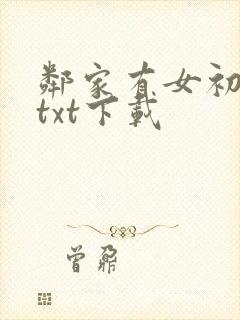 鄰家有女初
txt下載
曾鼐